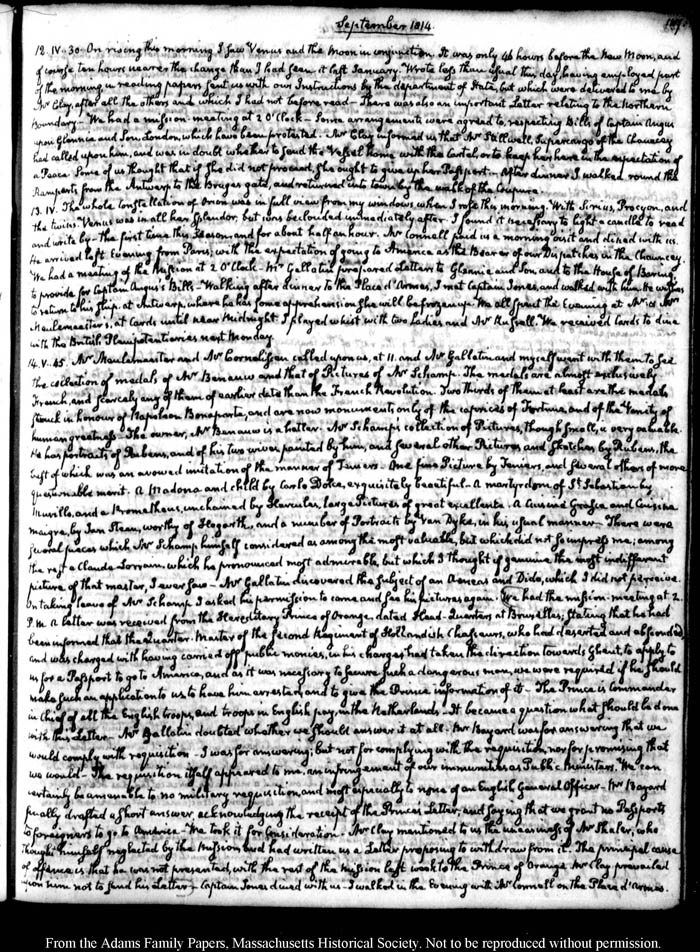 September 1814.
12. IV. 30. On rising this morning I saw Venus and the Moon in conjunction. It was only 46 hours before the New Moon, and
of course ten hours nearer the change than I had seen it last January. Wrote less than usual this day, having employed part
of the morning in reading papers sent us with our Instructions by the department of State, but which were delivered to me by
Mr Clay, after all the others and which I had not before read. There was also an important Letter relating to the Northern
Boundary. We had a mission-meeting at 2 O'Clock. Some arrangements were agreed to, respecting Bills of Captain Angus
upon Glennie and Son, London, which have been protested. Mr Clay informed us that Mr Stillwell, Supercargo of the Chauncey
had called upon him, and was in doubt whether to send the Vessel home with the Cartel, or to keep her here in the expectation of
a Peace. Some of us thought that if she did not proceed, she ought to give up her Passport. After dinner I walked round the
Ramparts from the Antwerp to the Bruges gate, and returned into town by the walk of the Coupure.
13. IV. The whole Constellation of Orion was in full view from my windows, when I rose this morning. With Sirius, Procyon, and
the twins. Venus was in all her splendor, but was beclouded immediately after. I found it necessary to light a candle to read
and write by - the first time this Season, and for about half an hour. Mr Connell paid us a morning visit and dined with us.
He arrived last Evening from Paris; with the expectation of going to America as the Bearer of our Dispatches in the Chauncey.
We had a meeting of the Mission at 2 O'Clock. Mr Gallatin prepared Letters to Glennie and Son, and to the House of Baring,
to provide for Captain Angus's Bills. Walking after dinner to the Place d'Armes, I met Captain Jones, and walked with him. He wishes
to return to his ship, at Antwerp, where he has some apprehension she will be frozen up. We all spent the Evening at Mr & Mrs
Meulemeester's, at Cards until near Midnight. I played whist with two Ladies and Mr Russell. We received Cards to dine
with the British Plenipotentiaries next Monday.
14. V. 45. Mr Meulemeester and Mr Cornelissen called upon us, at 11. and Mr Gallatin and myself went with them to see
the collection of medals of Mr Benauw and that of Pictures of Mr Schamp. The medals are almost exclusively
French, and scarcely any of them of earlier date than the French Revolution. Two thirds of them at least are the medals
struck in honour of Napoleon Bonaparte, and are now monuments only of the caprices of Fortune, and of the Vanity of
human greatness. The owner, Mr Benauw is a hatter. Mr Schamp's collection of Pictures, though small, is very valuable.
He has portraits of Rubens, and of his two wives, painted by him, and several other Pictures and Sketches by Rubens, the
best of which was an avowed imitation of the manner of Teniers. One fine Picture by Teniers, and several others of more
questionable merit. A Madona and child by Carlo Dolce, exquisitely beautiful. A martyrdom of St Sebastian by
Murillo, and a Prometheus, unchained by Hercules, large Pictures of great excellence. A Cuisine Grasse and Cuisine
maigre, by Jan Steen, worthy of Hogarth, and a number of Portraits by Van Dyke, in his usual manner. There were
several pieces which Mr Schamp himself considered as among the most valuable, but which did not so impress me; among
the rest a Claude Lorrain, which he pronounced most admirable, but which I thought if genuine the most indifferent
picture of that master, I ever saw. Mr Gallatin discovered the subject of an Aeneas and Dido, which I did not perceive.
On taking leave of Mr Schamp I asked his permission to come and see his pictures again. We had the mission-meeting at 2.
P.M. A letter was received from the Hereditary Prince of Orange, dated Head-Quarters at Bruxelles; stating that he had
been informed that the Quarter-Master of the second Regiment of Hollandish Chasseurs, who had deserted and absconded,
and was charged with having carried off public monies, in his charge, had taken the direction towards Ghent, to apply to
us for a Passport to go to America, and as it was necessary to secure such a dangerous man, we were required if he should
make such an application to us to have him arrested, and to give the Prince information of it. The Prince is Commander
in chief of all the English troops, and troops in English pay, in the Netherlands. It became a question what should be done
with this Letter. Mr Gallatin doubted whether we should answer it at all. Mr Bayard was for answering that we
would comply with requisition. I was for answering; but not for complying with the requisition, nor for promising that
we would. The requisition itself appeared to me, an infringement of our immunities as Public Ministers. We can
certainly be amenable to no military requisition, and most especially to none of an English General Officer. Mr Bayard
finally drafted a short answer, acknowledging the receipt of the Prince's Letter, and saying that we grant no Passports
to foreigners to go to America. We took it for consideration. Mr Clay mentioned to us the uneasiness of Mr Shaler, who
thought himself neglected by the Mission, and had written us a Letter proposing to withdraw from it. The principal cause
of offence is that he was not presented, with the rest of the Mission last week to the Prince of Orange. Mr Clay prevailed
upon him not to send his Letter. Captain Jones dined with us. I walked in the Evening with Mr Connell on the Place d'Armes.
From the Adams Family Papers, Massachusetts Historical Society. Not to be reproduced without permission.